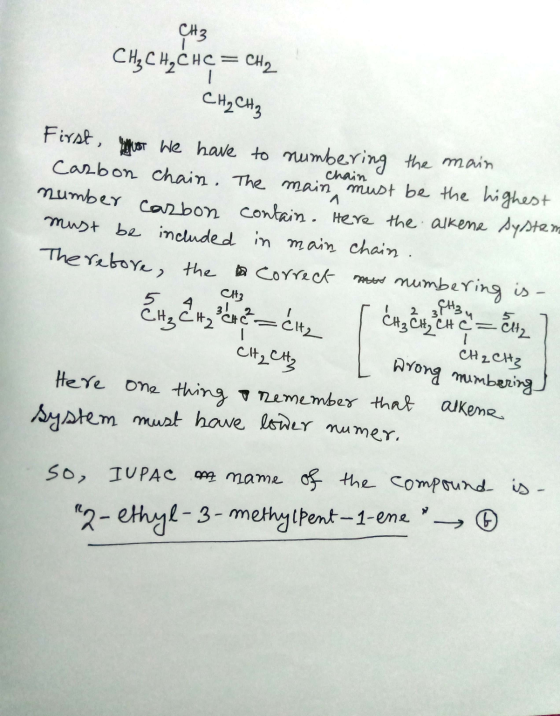 CH3
CH3CH2CHC = CH2
CH2CH3
First, We have to numbering the main
Carbon chain. The main chain must be the highest
number carbon contain. Here the alkene system
must be included in main chain.
Therefore, the correct numbering is -
5 4 CH3 3 2 1
CH3CH2CHC = CH2
CH2CH3
CH3
1 2 3 4 5
CH3CH2CHC = CH2
CH2CH3
Wrong numbering
Here one thing remember that alkene
system must have lower numer.
So, IUPAC name of the compound is -
"2-ethyl-3-methylpent-1-ene" → b